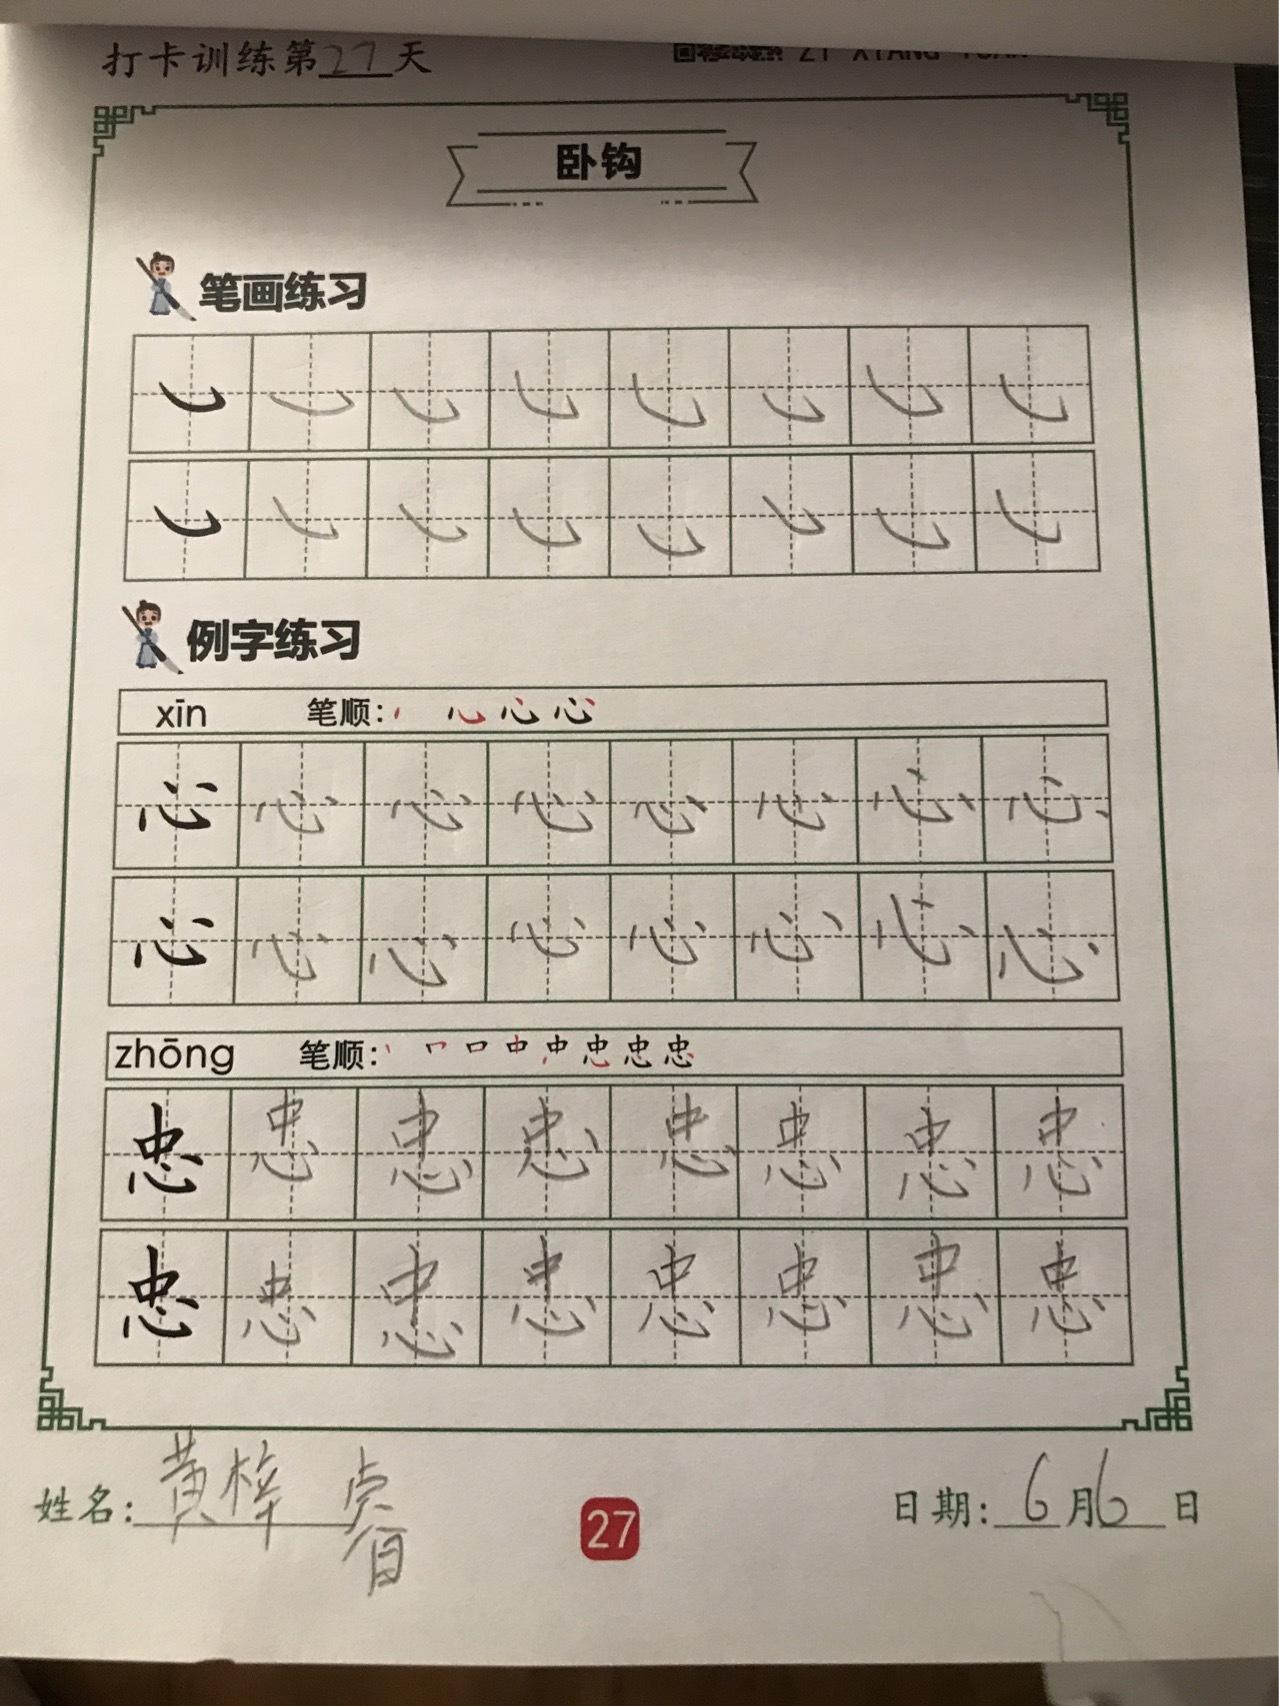 打卡训练第27天
ZI XIANG YUAN
卧钩
笔画练习
㇃ ㇃ ㇃ ㇃ ㇃ ㇃ ㇃ ㇃
㇃ ㇃ ㇃ ㇃ ㇃ ㇃ ㇃ ㇃
例字练习
xīn 笔顺:
心 心 心 心 心 心 心 心
心 心 心 心 心 心 心 心
zhōng 笔顺:
忠 忠 忠 忠 忠 忠 忠 忠
忠 忠 忠 忠 忠 忠 忠 忠
姓名: 黄梓睿
27
日期: 6月6日